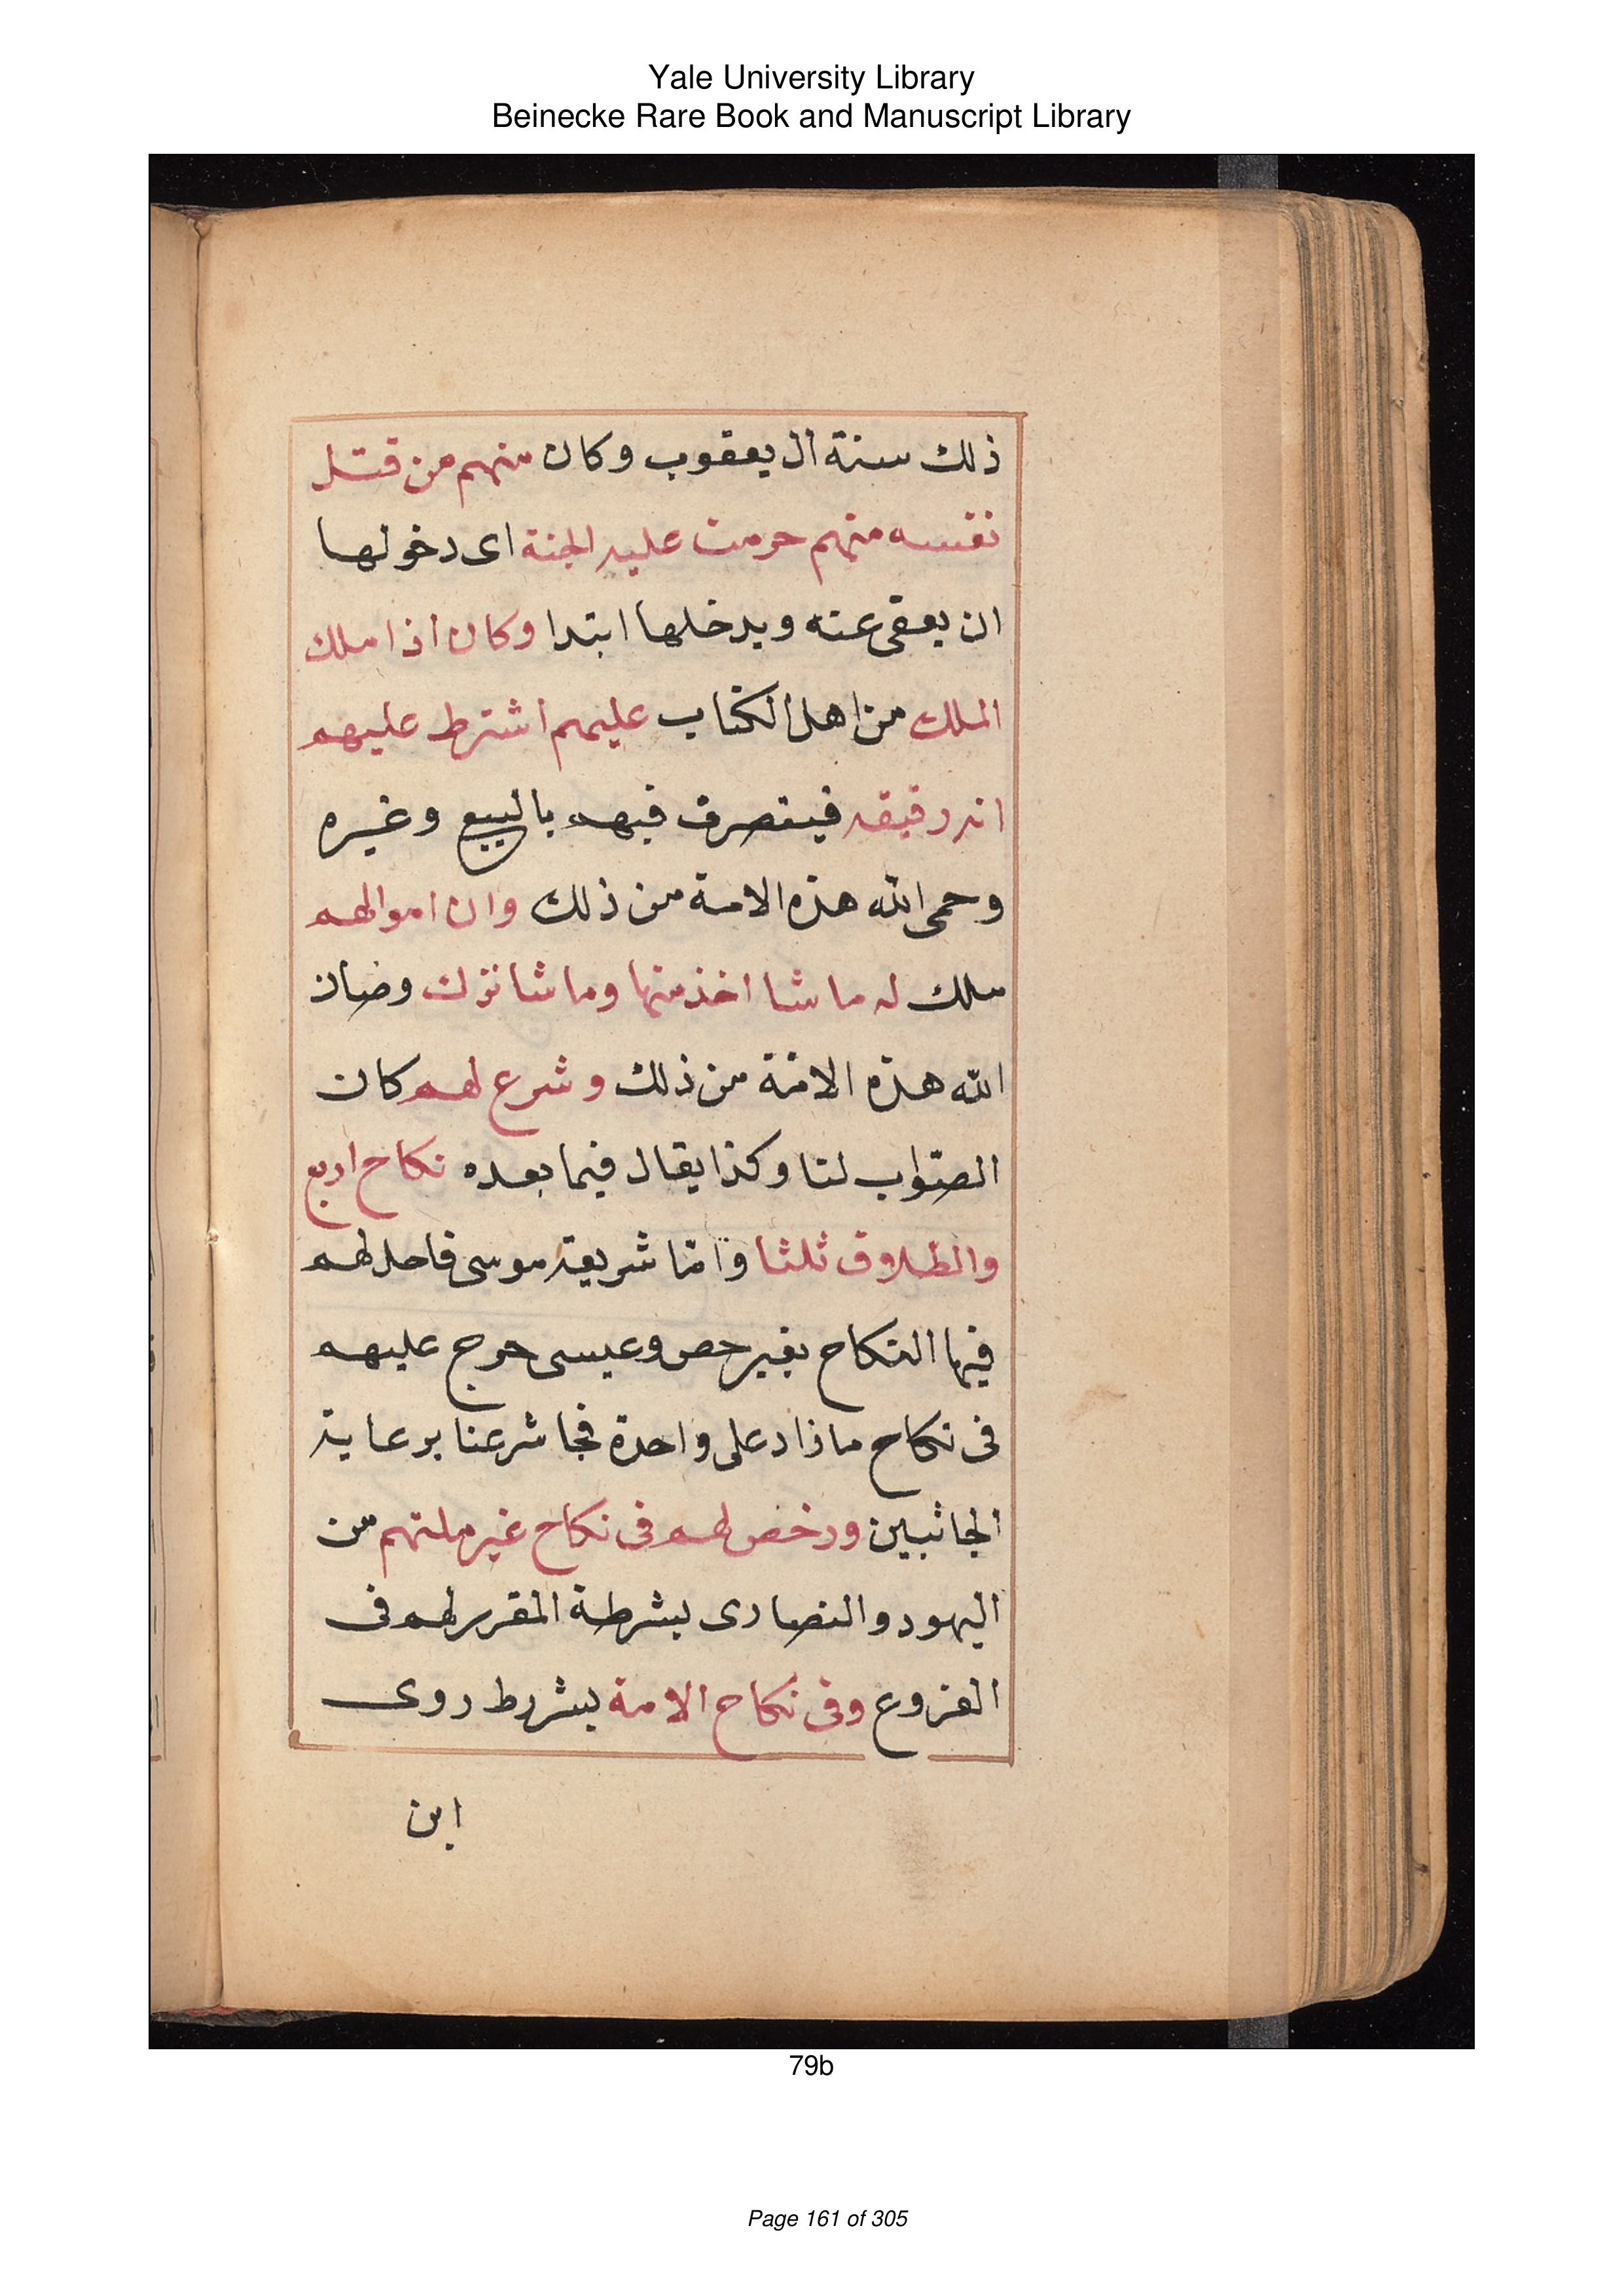 Yale University Library
Beinecke Rare Book and Manuscript Library
ذلك سنة ال يعقوب وكان منهم من قتل
نفسه منهم حرمت عليه الجنة اى دخولها
ان يعفى عنه ويدخلها ابتدا وكان اذا ملك
الملك من اهل الكتاب عليهم اشترط عليهم
انه رقيقه فيتصرف فيهم بالبيع وغيره
وحمى الله هذه الامة من ذلك وان اموالهم
ملك له ما شا اخذ منها وما شا ترك وصان
الله هذه الامة من ذلك وشرع لهم كان
الصواب لنا وكذا يقال فيما بعده نكاح اربع
والطلاق ثلثا واما شريعة موسى فاحل لهم
فيها النكاح بغير حصر وعيسى حرج عليهم
فى نكاح ما زاد على واحدة فجا شرعنا برعاية
الجانبين ورخص لهم فى نكاح غير ملتهم من
اليهود والنصارى بشرطة المقرر لهم فى
الفروع وفى نكاح الامة بشرط روى
ابن
79b
Page 161 of 305